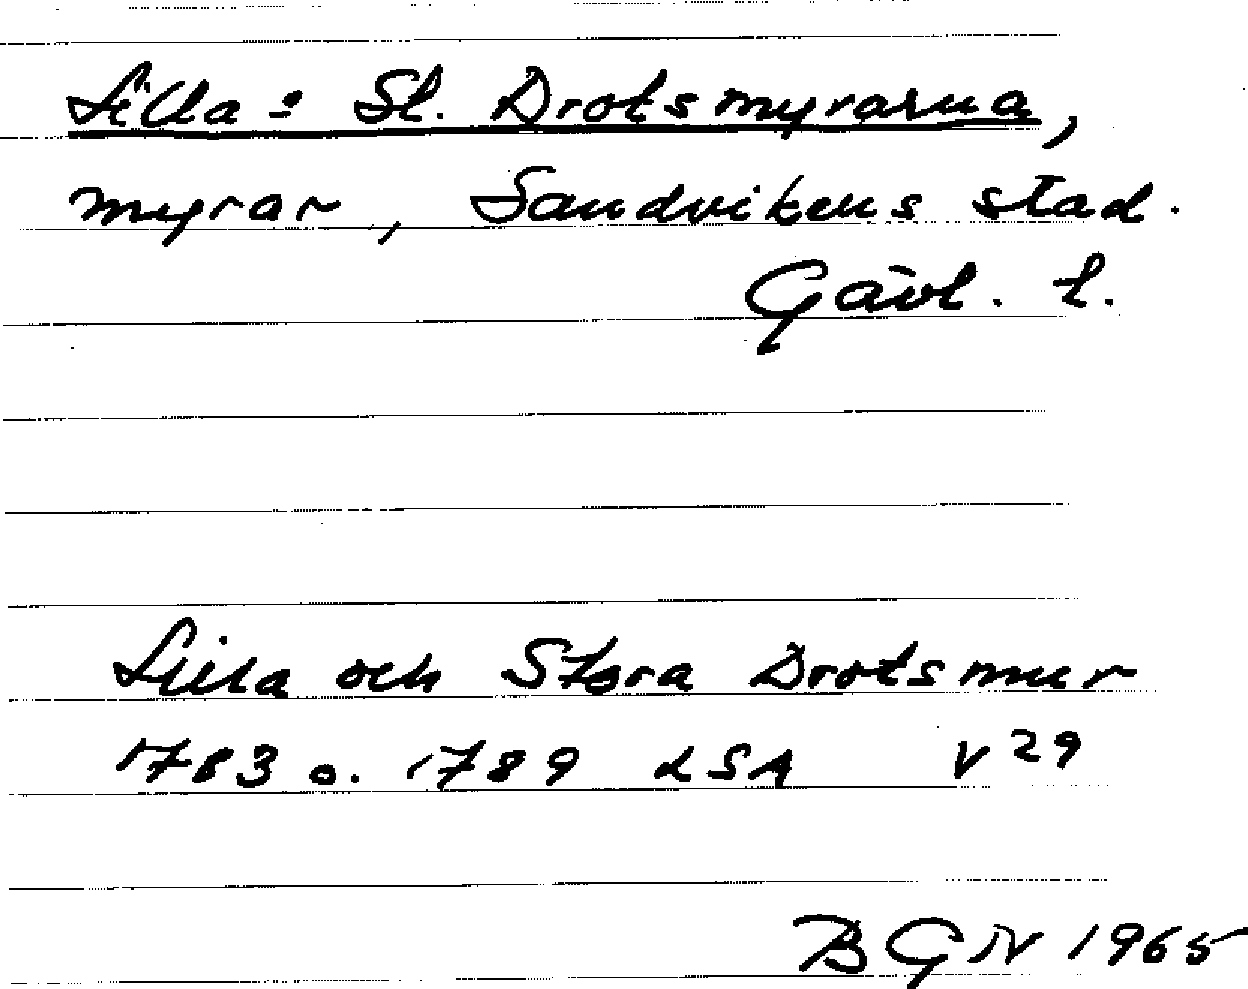 Lilla o St. Drotsmyrarna,
myrar, Sandvikens stad.
Gävl. l.
Lilla och Stora Drotsmur
1783 o. 1789 LSA V29
BGN 1965